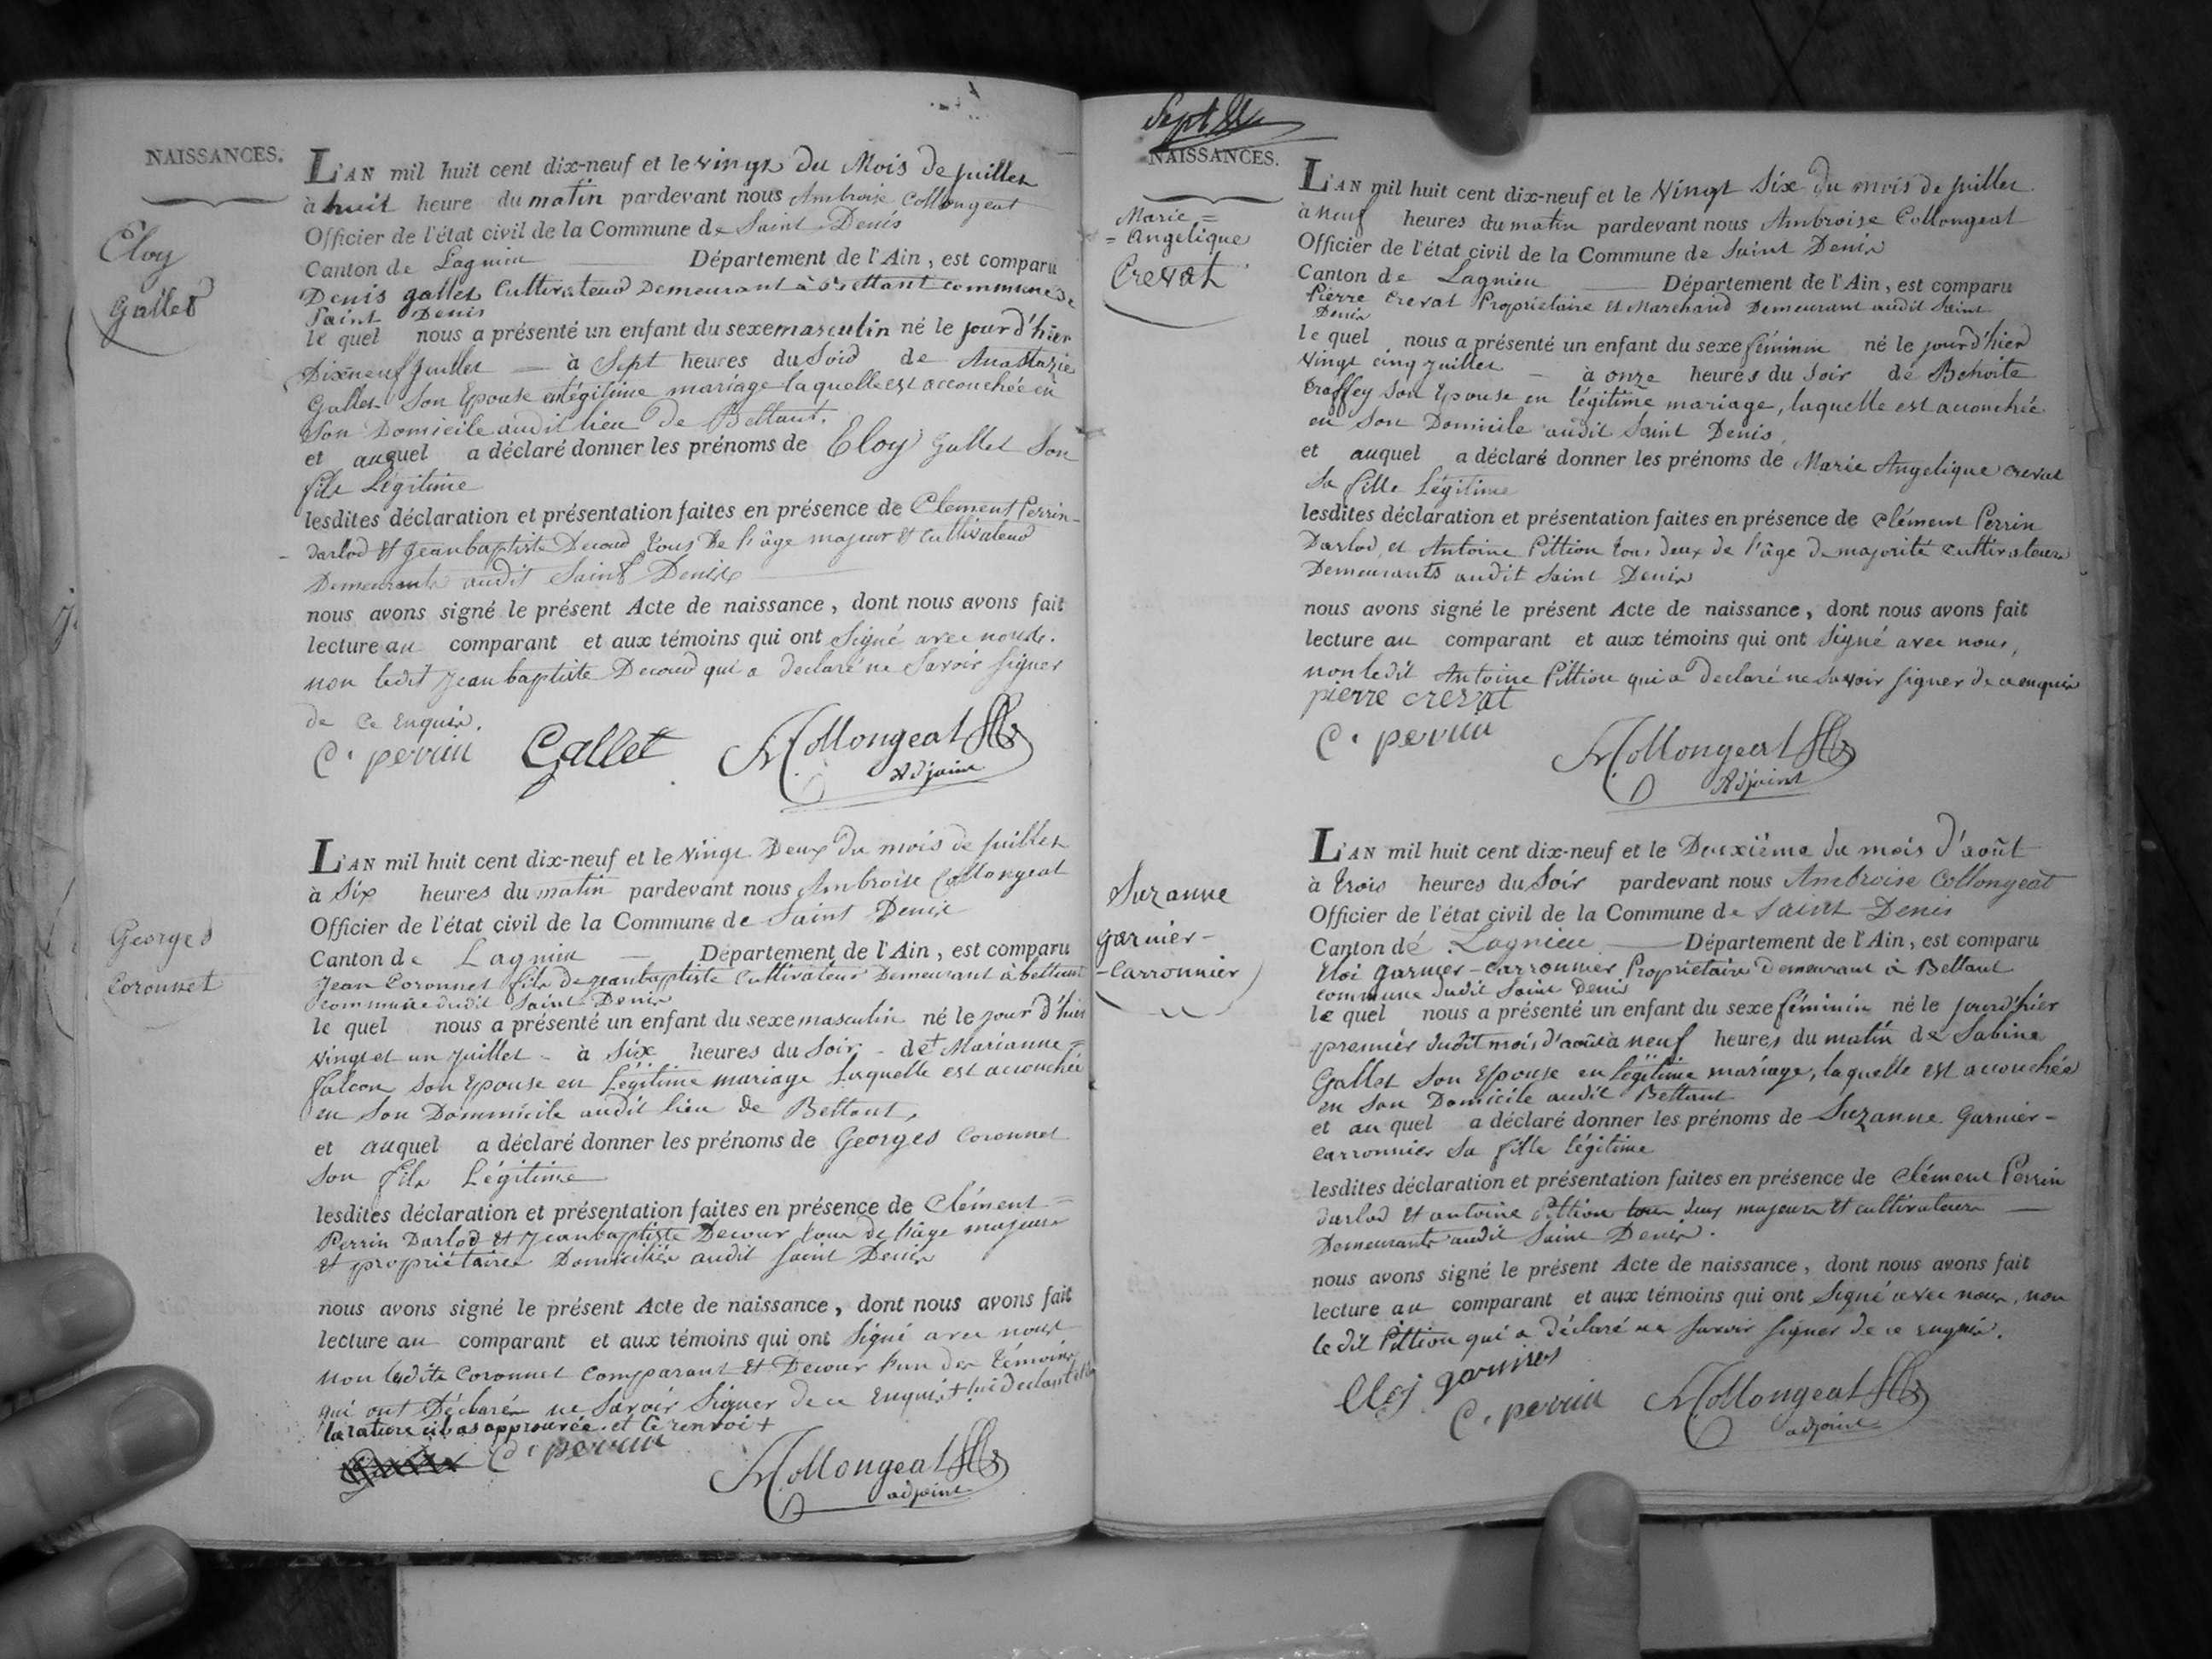 NAISSANCES.
Eloy
Gallet
L'AN mil huit cent dix-neuf et le vingt du Mois de juillet
à huit heure du matin pardevant nous Ambroise Collongeat
Officier de l'état civil de la Commune de Saint Denis
Canton de Lagnieu Département de l'Ain, est comparu
Denis gallet Cultivateur Demeurant à Bettant commune de
Saint Denis
le quel nous a présenté un enfant du sexe masculin né le jour d'hier
Dixneuf juillet à Sept heures du Soir de Anastazie
Gallet Son Epouse en légitime mariage laquelle est accouchée en
Son Domicile audit lieu de Bettant.
et auquel a déclaré donner les prénoms de Eloy Gallet Son
fils Légitime
lesdites déclaration et présentation faites en présence de Clement Perrin-
Darlod et Jean baptiste Decoud tous de l'âge majeur et Cultivateur
Demeurants audit Saint Denis
nous avons signé le présent Acte de naissance, dont nous avons fait
lecture au comparant et aux témoins qui ont Signé avec nous.
non ledit Jean baptiste Decoud qui a déclaré ne Savoir Signer
de Ce Enquis.
C. perrin Gallet Collongeat
Adjoint
Georges
Coronnet
L'AN mil huit cent dix-neuf et le vingt Deux du mois de juillet
à Six heures du matin pardevant nous Ambroise Collongeat
Officier de l'état civil de la Commune de Saint Denis
Canton de Lagnieu Département de l'Ain, est comparu
Jean Coronnet fils de jeanbaptiste Cultivateur Demeurant à bettant
commune dudit Saint Denis
le quel nous a présenté un enfant du sexe masculin né le jour d'hier
vingt et un juillet - à Six heures du Soir - de + Marianne =
falcon Son Epouse en Légitime mariage Laquelle est accouchée
en Son Dommicile audit lieu de Bettant,
et auquel a déclaré donner les prénoms de Georges Coronnet
Son fils Légitime
lesdites déclaration et présentation faites en présence de Clément =
Perrin Darlod et Jeanbaptiste Decour tous de l'âge majeurs
et propriétaires Domiciliés audit Saint Denis
nous avons signé le présent Acte de naissance, dont nous avons fait
lecture au comparant et aux témoins qui ont Signé avec nous
non ledit Coronnet Comparant et Decour l'un des témoins
qui ont Déclarés ne Savoir Signer de ce Enquis +
la rature ci bas approuvée et le renvoi +
C. perrin
Collongeat
adjoint
NAISSANCES.
Marie =
= Angelique
Crevat
L'AN mil huit cent dix-neuf et le vingt Six du mois de juillet
à neuf heures du matin pardevant nous Ambroise Collongeat
Officier de l'état civil de la Commune de Saint Denis
Canton de Lagnieu Département de l'Ain, est comparu
Pierre Crevat Propriétaire et Marchand Demeurant audit Saint
Denis
le quel nous a présenté un enfant du sexe féminin né le jourd'hier
vingt cinq juillet - à onze heures du Soir de Benoite
Son Epouse en légitime mariage, laquelle est accouchée
en Son Domicile audit Saint Denis,
et auquel a déclaré donner les prénoms de Marie Angelique Crevat
Sa fille Légitime
lesdites déclaration et présentation faites en présence de Clément Perrin
Darlod, et Antoine Pittion tous deux de l'âge de majorité cultivateurs
Demeurants audit Saint Denis
nous avons signé le présent Acte de naissance, dont nous avons fait
lecture au comparant et aux témoins qui ont Signé avec nous,
non ledit Antoine Pittion qui a déclaré ne Savoir Signer de ce enquis
pierre crevat
C. perrin
Collongeat
Adjoint
Suzanne
garnier-
-Carronnier
L'AN mil huit cent dix-neuf et le Deuxième du mois d'août
à trois heures du Soir pardevant nous Ambroise Collongeat
Officier de l'état civil de la Commune de Saint Denis
Canton de Lagnieu Département de l'Ain, est comparu
Eloi garnier-carronnier Propriétaire demeurant à Bettant
commune dudit Saint Denis
le quel nous a présenté un enfant du sexe féminin né le jourd'hier
premier dudit mois d'août à neuf heures du matin de Sabine
Gallet Son Epouse en légitime mariage, laquelle est accouchée
en Son Domicile audit Bettant
et au quel a déclaré donner les prénoms de Suzanne Garnier-
Carronnier Sa fille légitime
lesdites déclaration et présentation faites en présence de Clément Perrin
darlod et antoine Pittion tous deux majeurs et cultivateurs
Demeurants audit Saint Denis.
nous avons signé le présent Acte de naissance, dont nous avons fait
lecture au comparant et aux témoins qui ont Signé avec nous, non
le dit Pittion qui a déclaré ne Savoir Signer de ce Enquis.
Eloj garnier
C. perrin Collongeat
adjoint